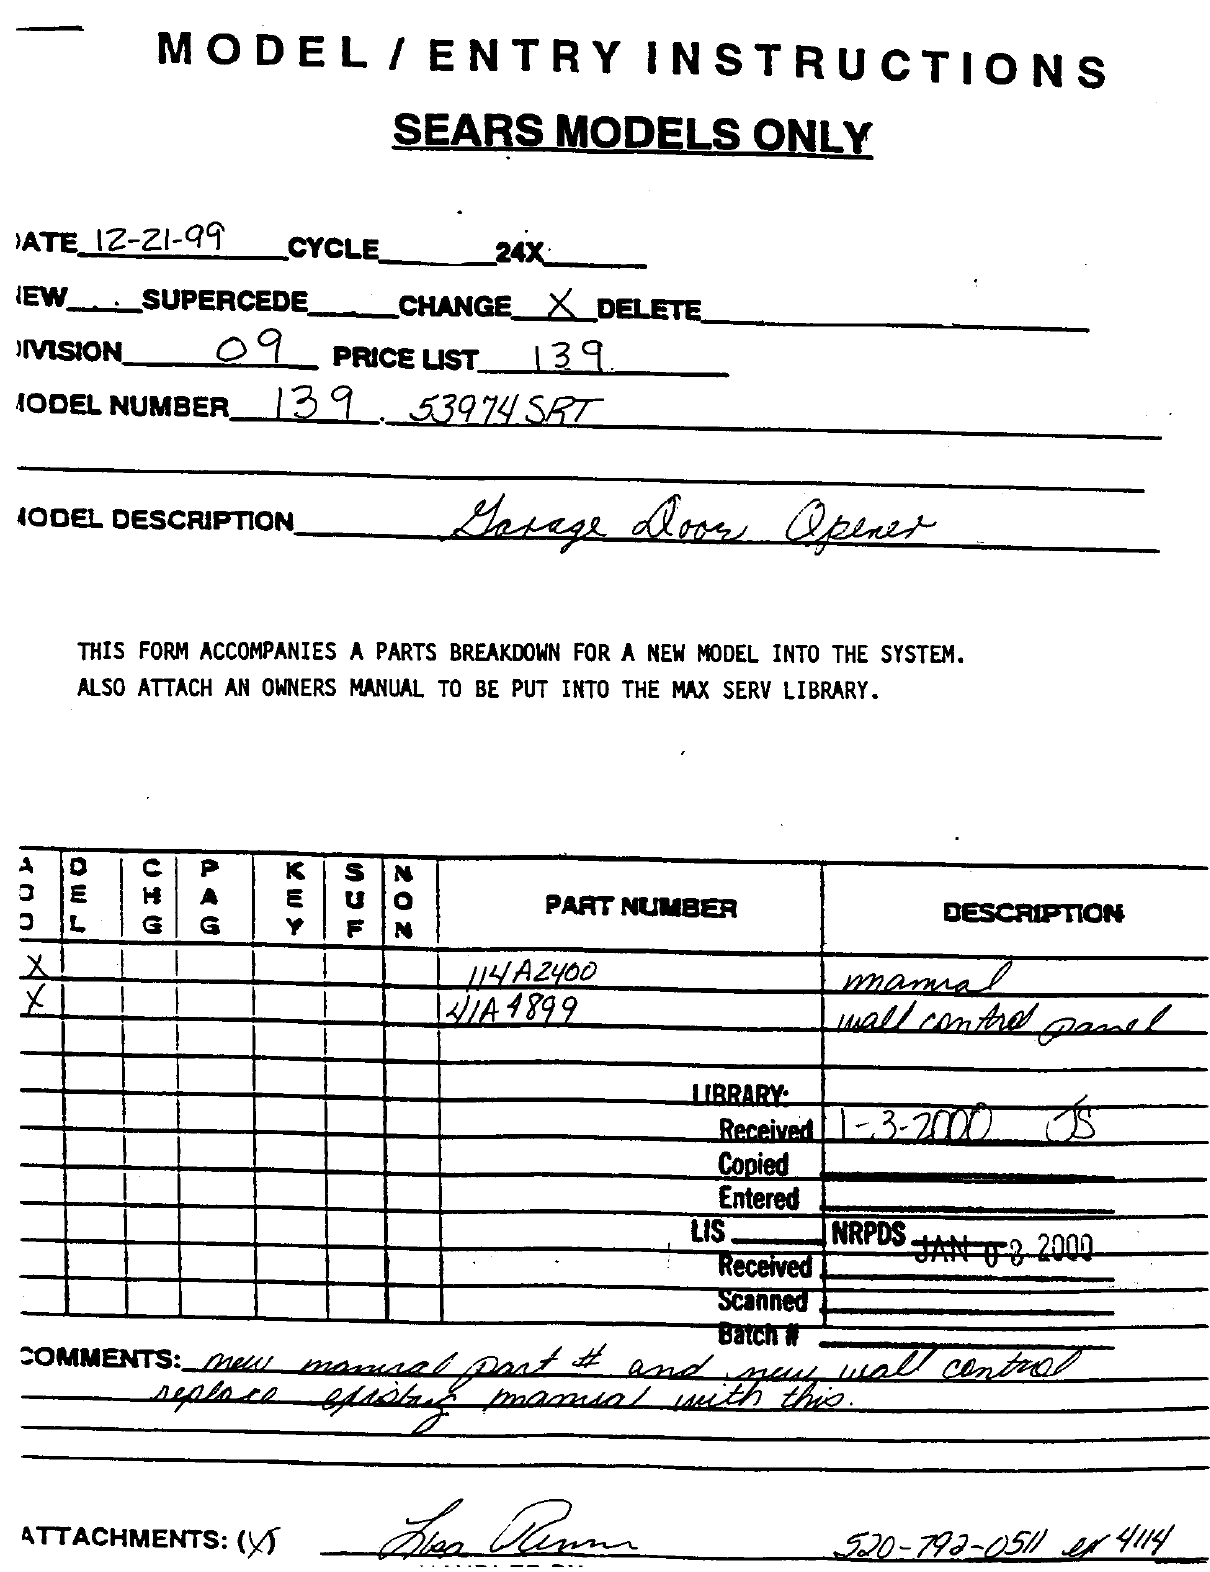 MODEL / ENTRY INSTRUCTIONS
SEARS MODELS ONLY
DATE 12-21-99 CYCLE 24X
NEW SUPERCEDE CHANGE X DELETE
DIVISION 09 PRICE LIST 139
MODEL NUMBER 139 . 53974SRT
MODEL DESCRIPTION Garage Door Opener
THIS FORM ACCOMPANIES A PARTS BREAKDOWN FOR A NEW MODEL INTO THE SYSTEM.
ALSO ATTACH AN OWNERS MANUAL TO BE PUT INTO THE MAX SERV LIBRARY.
ADD DEL CHG PAG KEY SUF NON PART NUMBER DESCRIPTION
X 114A2400 manual
X 41A4899 wall control panel
LIBRARY:
Received 1-3-2000 JS
Copied
Entered
LIS NRPDS JAN 03 2000
Received
Scanned
Batch #
COMMENTS: new manual part # and new wall control
replace existing manual with this.
ATTACHMENTS: (X) Lisa 520-792-0511 ex 4114